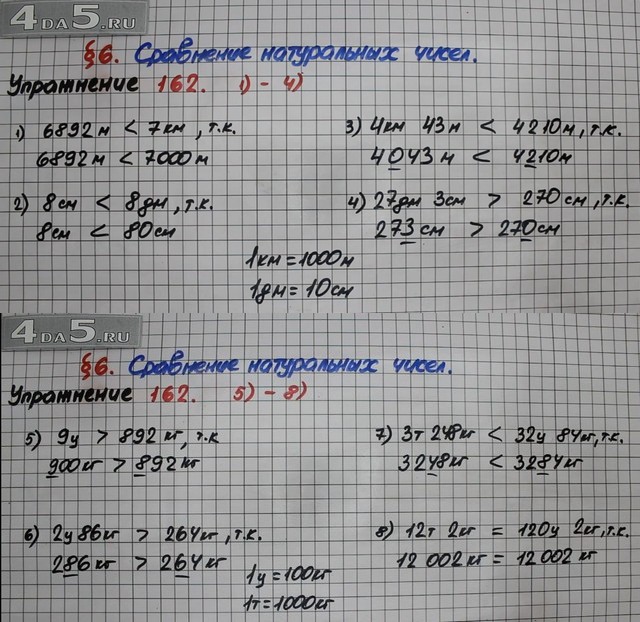 4DA5.RU
§6. Сравнение натуральных чисел.
Упражнение 162. 1) - 4)
1) 6892м < 7км, т.к.
6892м < 7000м
2) 8см < 8дм, т.к.
8см < 80см
3) 4км 43м < 4210м, т.к.
4043м < 4210м
4) 27дм 3см > 270см, т.к.
273см > 270см
1км = 1000м
1дм = 10см
4DA5.RU
§6. Сравнение натуральных чисел.
Упражнение 162. 5) - 8)
5) 9ц > 892кг, т.к
900кг > 892кг
6) 2ц 86кг > 264кг, т.к.
286кг > 264кг
7) 3т 248кг < 32ц 84кг, т.к.
3248кг < 3284кг
8) 12т 2кг = 120ц 2кг, т.к.
12 002кг = 12 002кг
1ц = 100кг
1т = 1000кг